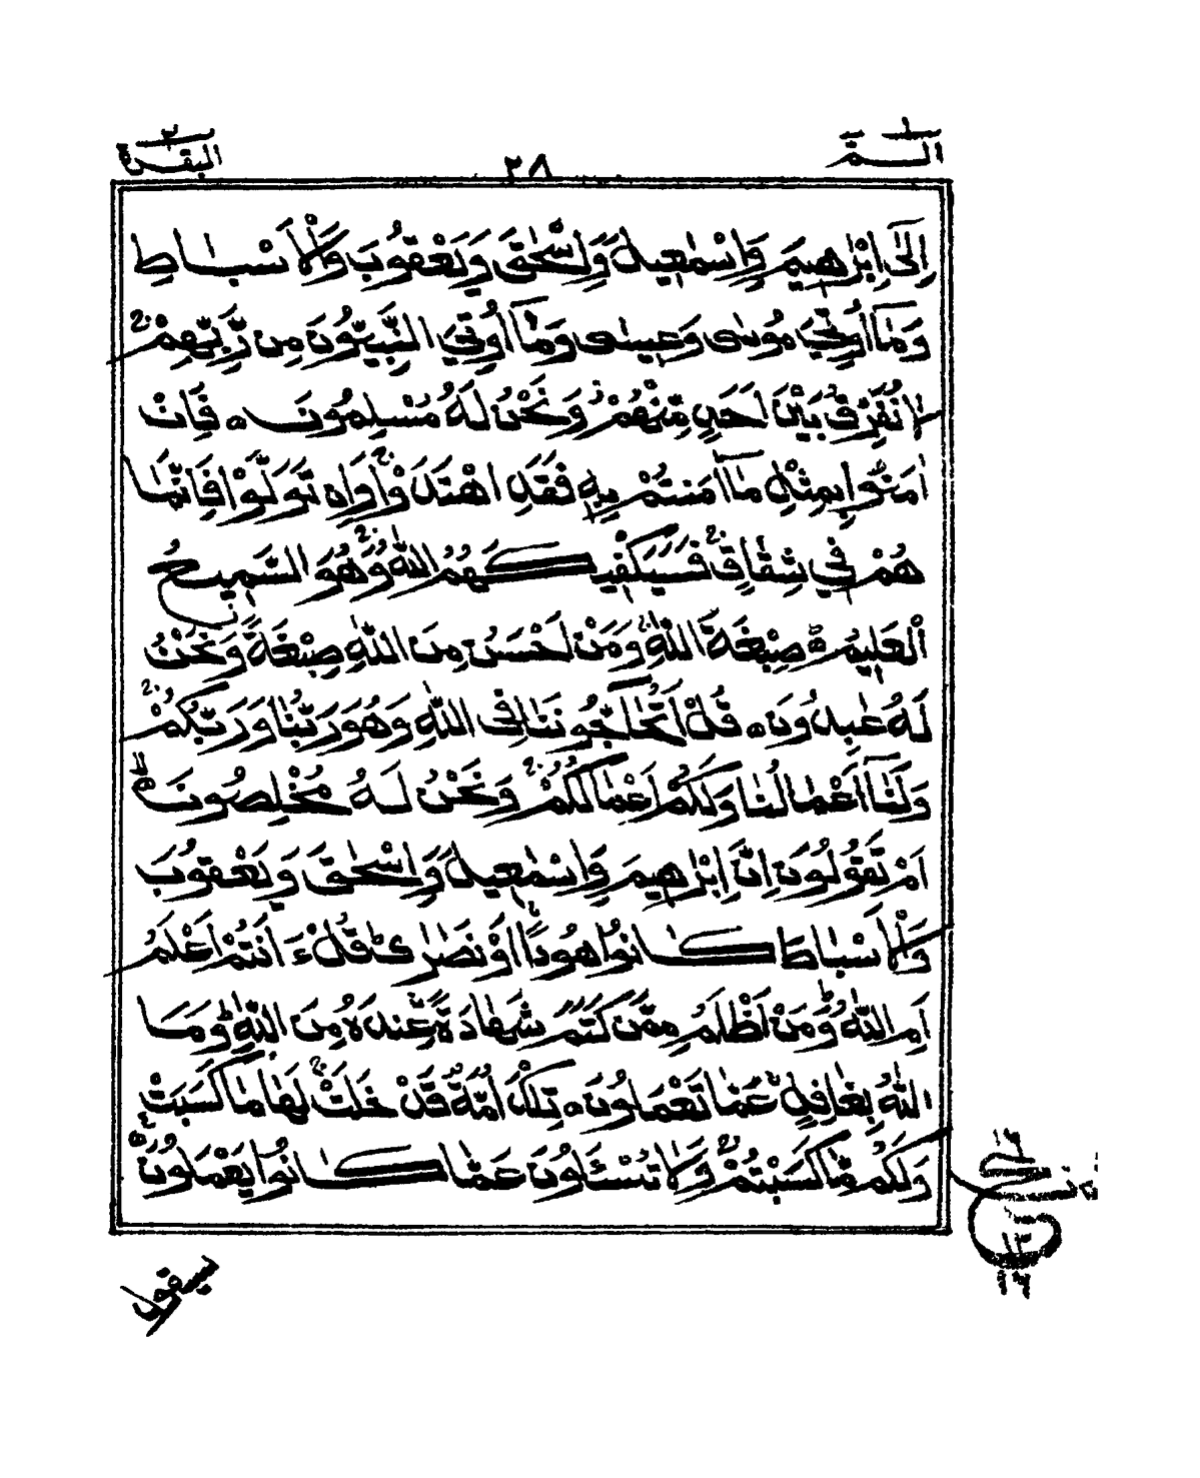 الٓمّٓ ١
٢٨
البقرة ٢
اِلٰٓى اِبْرٰهٖمَ وَاِسْمٰعِيْلَ وَاِسْحٰقَ وَيَعْقُوْبَ وَالْاَسْبَاطِ
وَمَآ اُوْتِيَ مُوْسٰى وَعِيْسٰى وَمَآ اُوْتِيَ النَّبِيُّوْنَ مِنْ رَّبِّهِمْ ۚ
لَا نُفَرِّقُ بَيْنَ اَحَدٍ مِّنْهُمْ ۖ وَنَحْنُ لَهٗ مُسْلِمُوْنَ ۝ فَاِنْ
اٰمَنُوْا بِمِثْلِ مَآ اٰمَنْتُمْ بِهٖ فَقَدِ اهْتَدَوْا ۚ وَاِنْ تَوَلَّوْا فَاِنَّمَا
هُمْ فِيْ شِقَاقٍ ۚ فَسَيَكْفِيْكَهُمُ اللّٰهُ ۚ وَهُوَ السَّمِيْعُ
الْعَلِيْمُ ۝ صِبْغَةَ اللّٰهِ ۚ وَمَنْ اَحْسَنُ مِنَ اللّٰهِ صِبْغَةً ۖ وَنَحْنُ
لَهٗ عٰبِدُوْنَ ۝ قُلْ اَتُحَآجُّوْنَنَا فِى اللّٰهِ وَهُوَ رَبُّنَا وَرَبُّكُمْ ۚ
وَلَنَآ اَعْمَالُنَا وَلَكُمْ اَعْمَالُكُمْ ۚ وَنَحْنُ لَهٗ مُخْلِصُوْنَ ۝
اَمْ تَقُوْلُوْنَ اِنَّ اِبْرٰهٖمَ وَاِسْمٰعِيْلَ وَاِسْحٰقَ وَيَعْقُوْبَ
وَالْاَسْبَاطَ كَانُوْا هُوْدًا اَوْ نَصٰرٰى ۗ قُلْ ءَاَنْتُمْ اَعْلَمُ
اَمِ اللّٰهُ ۗ وَمَنْ اَظْلَمُ مِمَّنْ كَتَمَ شَهَادَةً عِنْدَهٗ مِنَ اللّٰهِ ۗ وَمَا
اللّٰهُ بِغَافِلٍ عَمَّا تَعْمَلُوْنَ ۝ تِلْكَ اُمَّةٌ قَدْ خَلَتْ ۚ لَهَا مَا كَسَبَتْ
وَلَكُمْ مَّا كَسَبْتُمْ ۚ وَلَا تُسْـَٔلُوْنَ عَمَّا كَانُوْا يَعْمَلُوْنَ ۝
١٦
ع
١٣
١٦
سيقول